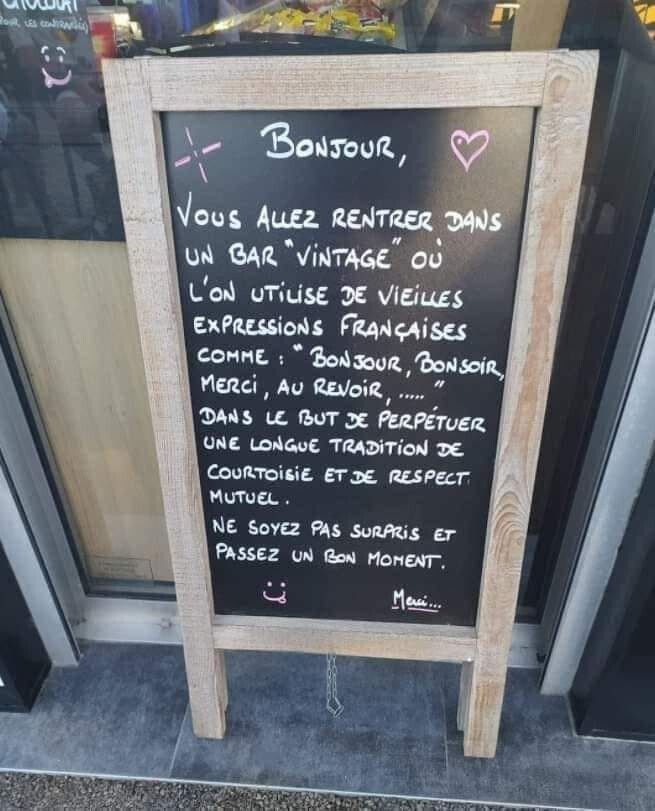 CHOCOLAT
BONJOUR,
VOUS ALLEZ RENTRER DANS
UN BAR "VINTAGE" OÙ
L'ON UTILISE DE VIEILLES
EXPRESSIONS FRANÇAISES
COMME : "BONJOUR, BONSOIR,
MERCI, AU REVOIR, ....."
DANS LE BUT DE PERPÉTUER
UNE LONGUE TRADITION DE
COURTOISIE ET DE RESPECT
MUTUEL.
NE SOYEZ PAS SURPRIS ET
PASSEZ UN BON MOMENT.
Merci...